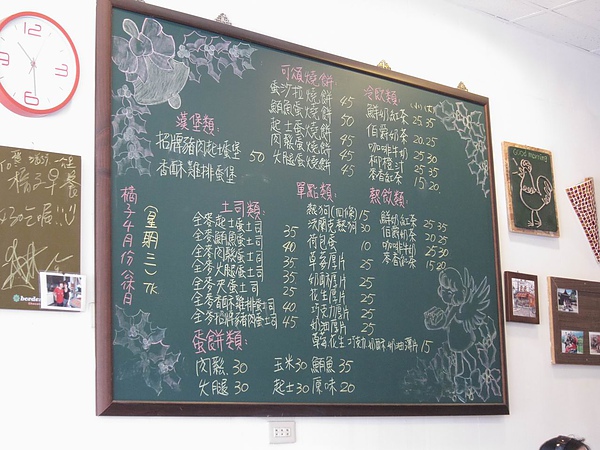 12
可頌燒餅
蛋沙拉燒餅 45
鮪魚蛋燒餅 50
起士蛋燒餅 45
肉鬆蛋燒餅 45
火腿蛋燒餅 45
冷飲類:
(小)(大)
鮮奶紅茶 25 35
伯爵奶茶 20.25
咖啡牛奶 25 30
柳橙汁 25 35
茶香紅茶 15 20
漢堡類:
招牌豬肉起士蛋堡 50
香酥雞排蛋堡
橘子4月份公休日
(星期三)TK
土司類:
全麥起士蛋土司 35
全麥鮪魚蛋土司 40
全麥肉鬆蛋土司 35
全麥火腿蛋土司 35
全麥夾蛋土司 25
全麥香酥雞排蛋土司 40
全麥招牌豬肉蛋土司 45
單點類:
熱狗(四條) 15
法蘭克熱狗 30
荷包蛋 10
草莓厚片 25
奶酥厚片 25
花生厚片 25
巧克力厚片 25
奶油厚片 25
草莓花生巧克奶酥奶油薄片 15
熱飲類:
鮮奶紅茶 25 35
伯爵奶茶 20.25
咖啡牛奶 25 30
茶香紅茶 15 20
蛋餅類:
肉鬆 30 玉米 30 鮪魚 35
火腿 30 起士 30 原味 20
橘子早餐
好吃喔!!!
Good Morning